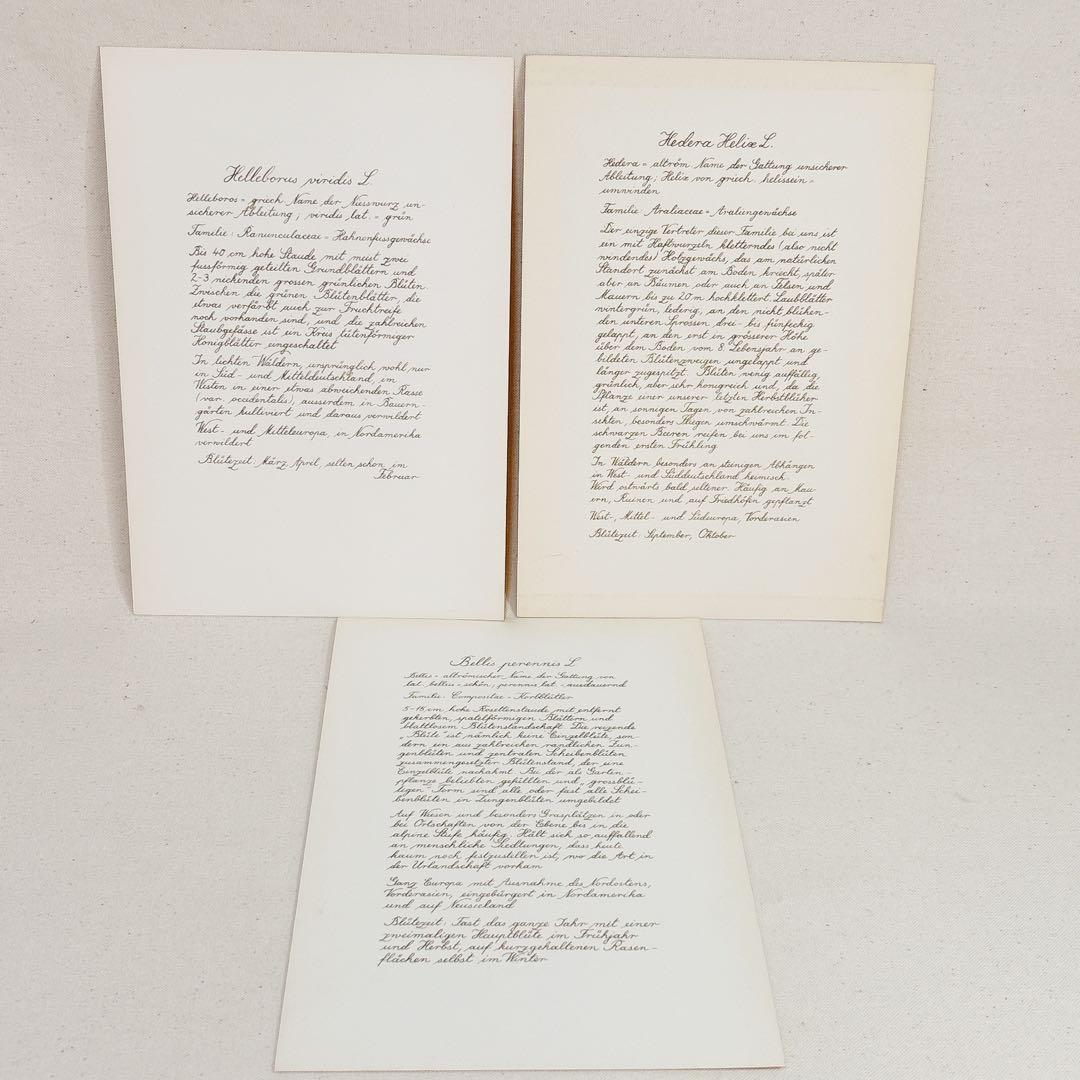 Helleborus viridis L.
Helleboros = griech Name der Nieswurz un-
sicherer Ableitung; viridis lat. = grün
Familie: Ranunculaceae = Hahnenfussgewächse
Bis 40 cm hohe Staude mit meist zwei
fussförmig geteilten Grundblättern und
2-3 nickenden grossen grünlichen Blüten.
Zwischen die grünen Blütenblätter, die
etwas verfärbt auch zur Fruchtreife
noch vorhanden sind, und die zahlreichen
Staubgefässe ist ein Kreis tütenförmiger
Honigblätter eingeschaltet
In lichten Wäldern, ursprünglich wohl nur
in Süd- und Mitteldeutschland, im
Westen in einer etwas abweichenden Rasse
(var. occidentalis), ausserdem in Bauern-
gärten kultiviert und daraus verwildert
West- und Mitteleuropa, in Nordamerika
verwildert
Blütezeit: März, April, selten schon im
Februar
Hedera Helix L.
Hedera = altröm Name der Gattung unsicherer
Ableitung; Helix von griech. helissein =
umwinden
Familie: Araliaceae = Araliengewächse
Der einzige Vertreter dieser Familie bei uns ist
ein mit Haftwurzeln kletterndes (also nicht
windendes) Holzgewächs, das am natürlichen
Standort zunächst am Boden kriecht, später
aber an Bäumen oder auch an Felsen und
Mauern bis zu 20 m hochklettert. Laubblätter
wintergrün, ledrig, an den nicht blühen-
den unteren Sprossen drei- bis fünfeckig
gelappt, an den erst in grösserer Höhe
über dem Boden vom 8. Lebensjahr an ge-
bildeten Blütenzweigen ungelappt und
länger zugespitzt. Blüten wenig auffällig,
grünlich, aber sehr honigreich und, da die
Pflanze einer unserer letzten Herbstblüher
ist, an sonnigen Tagen von zahlreichen In-
sekten, besonders Fliegen umschwärmt. Die
schwarzen Beeren reifen bei uns im fol-
genden ersten Frühling
In Wäldern besonders an steinigen Abhängen
in West- und Süddeutschland heimisch.
Wird ostwärts bald seltener. Häufig an Mau-
ern, Ruinen und auf Friedhöfen gepflanzt
West-, Mittel- und Südeuropa, Vorderasien
Blütezeit: September, Oktober
Bellis perennis L
Bellis = altrömischer Name der Gattung von
lat. bellus = schön; perennis lat. = ausdauernd
Familie: Compositae = Korbblütler
5-15 cm hohe Rosettenstaude mit entfernt
gekerbten, spatelförmigen Blättern und
blattlosem Blütenstandschaft. Die reizende
„Blüte" ist nämlich keine Einzelblüte, son
dern ein aus zahlreichen randlichen Zun-
genblüten und zentralen Scheibenblüten
zusammengesetzter Blütenstand, der eine
Einzelblüte nachahmt. Bei der als Garten-
pflanze beliebten gefüllten und „grossblü-
tigen" Form sind alle oder fast alle Schei-
benblüten in Zungenblüten umgebildet
Auf Wiesen und besonders Grasplätzen in oder
bei Ortschaften von der Ebene bis in die
alpine Stufe häufig. Hält sich so auffallend
an menschliche Siedlungen, dass heute
kaum noch festzustellen ist, wo die Art in
der Urlandschaft vorkam
Ganz Europa mit Ausnahme des Nordostens,
Vorderasien, eingebürgert in Nordamerika
und auf Neuseeland
Blütezeit: Fast das ganze Jahr mit einer
zweimaligen Hauptblüte im Frühjahr
und Herbst, auf kurzgehaltenen Rasen-
flächen selbst im Winter